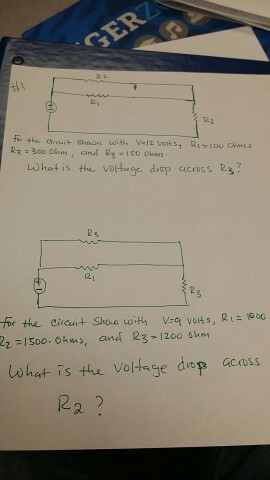 GERZ
#1
R2
R1
R3
For the circuit shown with V=12 volts, R1=100 Ohms
R2=300 Ohm, and R3=150 Ohms.
What is the voltage drop across R3?
R3
R1
R3
For the circuit Show with V=9 volts, R1=1000
R2=1500. Ohms, and R3=1200 Ohm
What is the voltage drop across
R2?